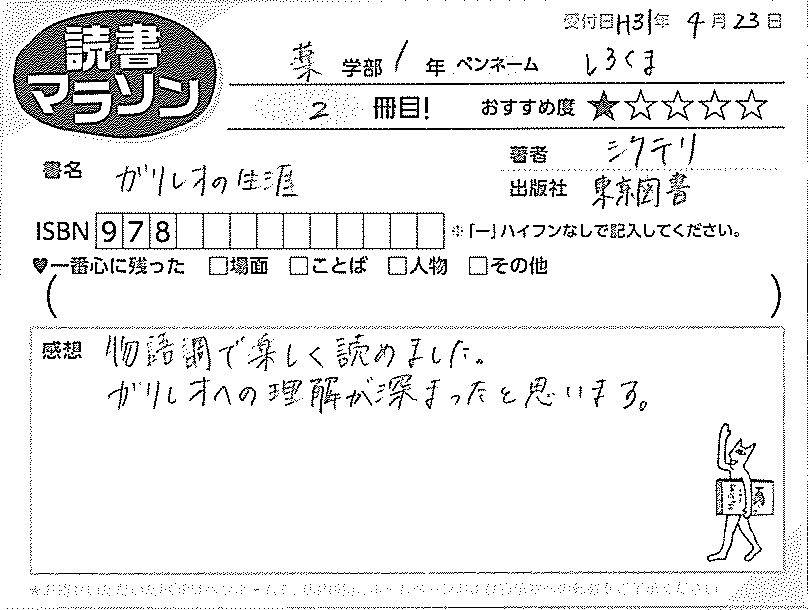 読書
マラソン
受付日H31年 4月23日
薬 学部 1 年 ペンネーム しろくま
2 冊目! おすすめ度 ★☆☆☆☆
書名 ガリレオの生涯
著者 シクテリ
出版社 東京図書
ISBN 978 ※「ー」ハイフンなしで記入してください。
♥一番心に残った □場面 □ことば □人物 □その他
( )
感想 物語調で楽しく読めました。
ガリレオへの理解が深まったと思います。